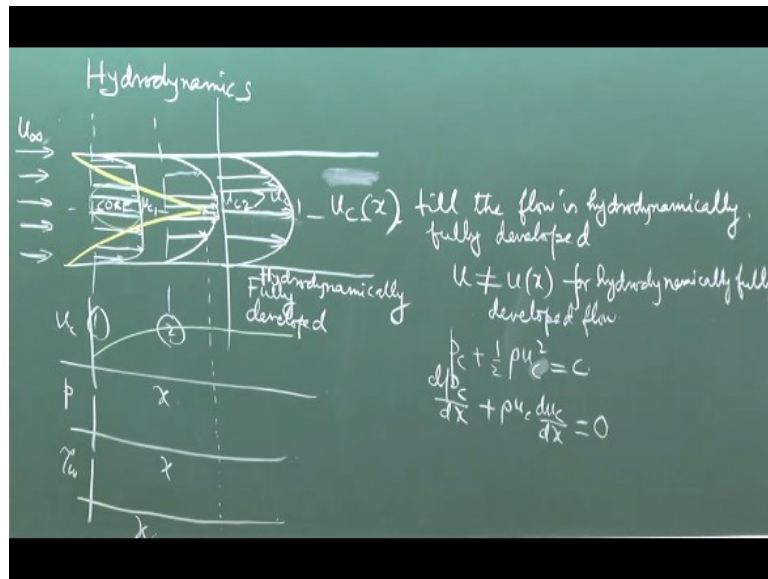 Hydrodynamics
U∞
CORE
u_c1
u_c2 > u_c1
U_c(x) till the flow is hydrodynamically
fully developed
Hydrodynamically
Fully
developed
u ≠ u(x) for hydrodynamically fully
developed flow
U_c
1
2
p_c + ½ρu_c² = c
dp_c/dx + ρu_c du_c/dx = 0
p
x
τ_w
x
x